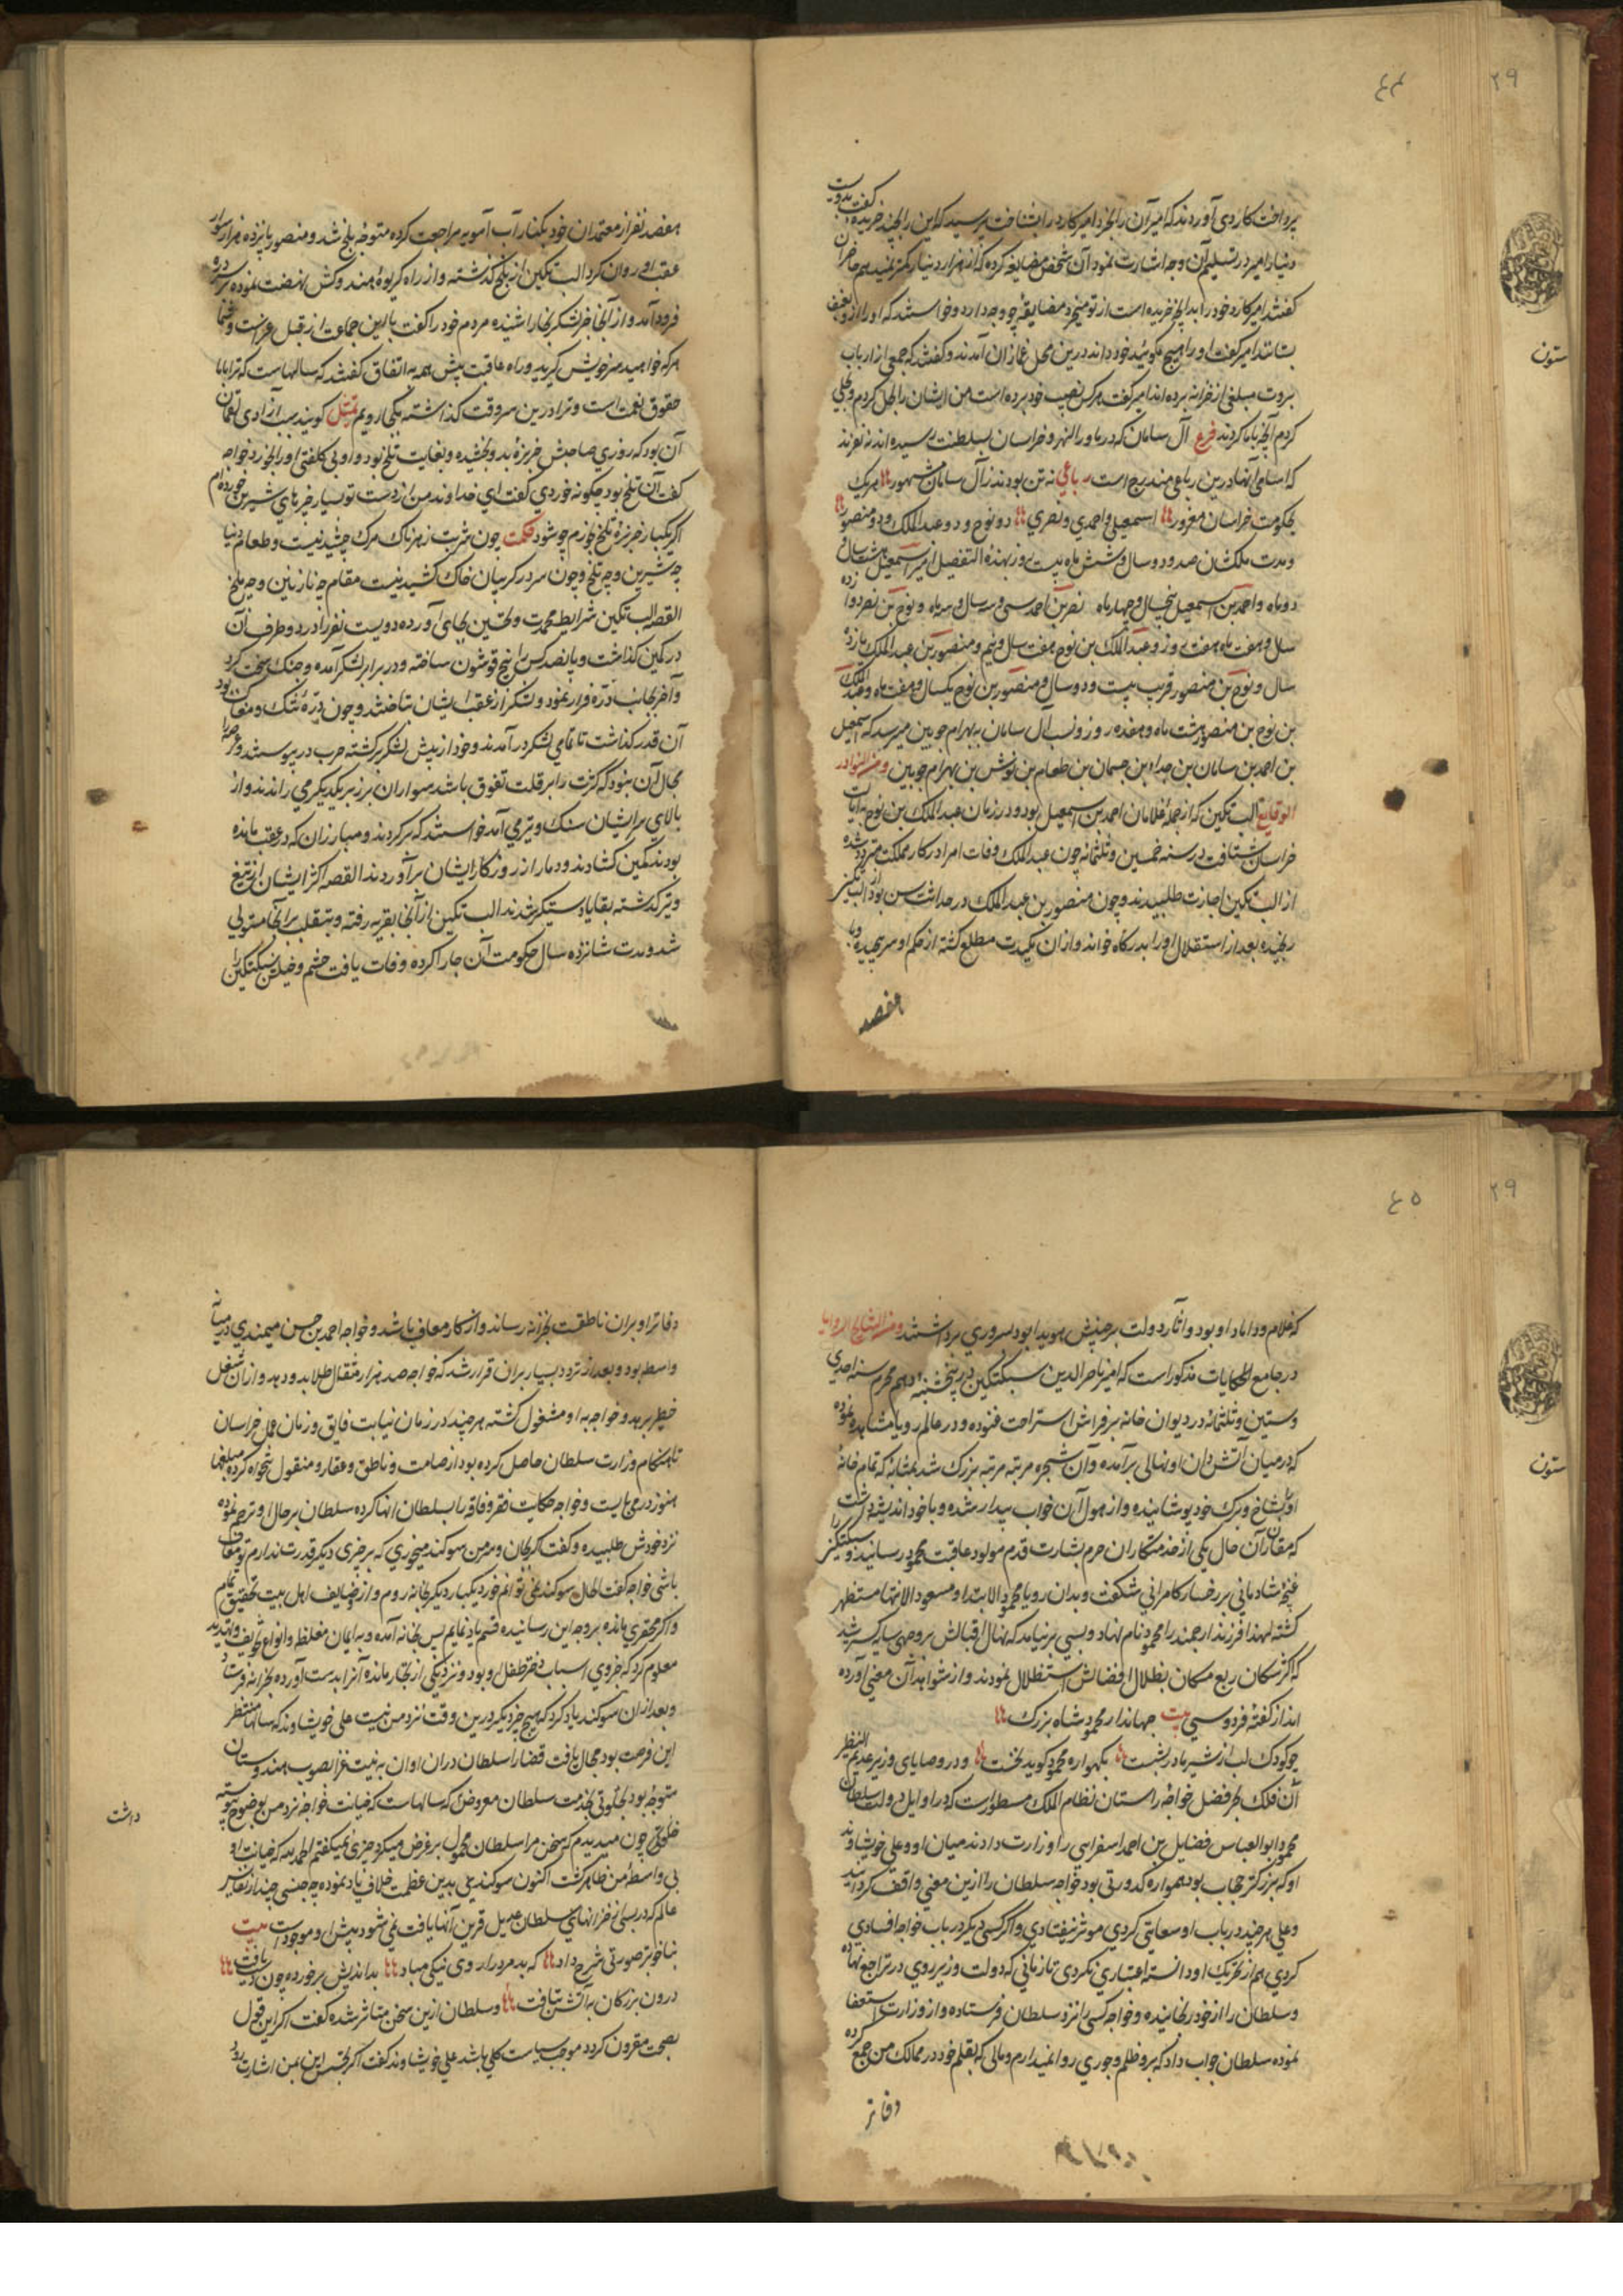 ٤٤
٢٩
پرداخت کاردی آوردند که امیر آن را بخرد امیر کارد را بشناخت پرسید که این را بچند خریده گفت بدویست
دینار امیر در تسلیم آن وجه اشارت نمود آن شخص مضایقه کرده که از هزار دینار کمتر نمیدهم حاضران
گفتند امیر کارد خود را بدانچه خریده است از تو میخرد مضایقه چه وجه دارد و خواستند که او را از و بعنف
بستانند امیر گفت او را هیچ مگوئید خود داند درین محل غمازان آمدند و گفتند که جمعی از ارباب
بروت مبلغی از خزانه برده اند امیر گفت هر کس نصیب خود برده است من ایشان را بحل کردم و بحلی
کردم آنچه با ما کردند فرع آل سامان که در ماوراالنهر و خراسان بسلطنت رسیده اند نه نفرند
که اسامی آنها درین رباعی مندرج است رباعی نه تن بودند زآل سامان مشهور هر یک
بحکومت خراسان مغرور اسمعیلی و احمدی و نصری دو نوح و دو عبدالملک و دو منصور
و مدت ملکشان صد و دو سال و شش ماه بیست روز بهذه التفصیل امیر اسمعیل هشت سال و
دو ماه و احمد بن اسمعیل پنجسال و چهار ماه نصر بن احمد سی و سه سال و سه ماه و نوح بن نصر دوازده
سال و هفت ماه هفت روز و عبدالملک بن نوح هفت سال و نیم و منصور بن عبدالملک یازده
سال و نوح بن منصور قریب بیست و دو سال و منصور بن نوح یکسال و هفت ماه و عبدالملک
بن نوح بن منصور هشت ماه و هفده روز و نسب آل سامان به بهرام چوبین میرسد که اسمعیل
بن احمد بن سامان بن جداه بن جسمان بن طغام بن نوش بن بهرام چوبین ومن النوادر
الوقایع الب تکین که از جمله غلامان احمد بن اسمعیل بود و در زمان عبدالملک بن نوح بایالت
خراسان شتافت در سنه خمسین و ثلثمائه چون عبدالملک وفات امرا در کار مملکت متردد شده
از الب تکین اجازت طلبیدند و چون منصور بن عبدالملک در حداثت سن بود از البتکین
رنجیده بعد از استقلال او را بدرگاه خواند و از ان مکیدت مطلع گشته از حکم او سر پیچیده و با
هفصد
ستون
هفصد نفر از معتمدان خود بکنار آب آمویه مراجعت کرده متوجه بلخ شد و منصور پانزده هزار سوار
عقب او روان کرد الب تکین از بلخ گذشته و از راه کریوه هند و کش نهضت نموده سر دره
فرود آمد و از آنجا خبر لشکر بخارا شنیده مردم خود را گفت با این جماعت از قبل غزاست و شما
هر که خواهید سر خویش گیرید و راه عاقبت پیش همه به اتفاق گفتند که سالهاست که ترا با ما
حقوق نعمت است و ترا درین سر وقت گذاشته بکجا رویم تمثل گویند سبب آزادی لقمان
آن بود که روزی صاحبش خربزۀ بدو بخشیده و بغایت تلخ بود و او بی کلفتی او را بخورد خواجه
گفت آن تلخ بود چگونه خوردی گفت ای خداوند من از دست تو بسیار خبزهای شیرین خورده ام
اگر یکبار خربزۀ تلخ بخورم چه شود حکمت چون شربت زهرناک مرگ چشیدنیست و طعام دنیا
چه شیرین و چه تلخ و چون سر در گریبان خاک کشیدنیست مقام چه نازنین و چه بلخ
القصه الب تکین شرایط محمدت و تحسین بجای آورده دویست نفر را در دو طرف آن
در کمین گذاشت و پانصد کس را پنج قوشون ساخته و در برابر لشکر آمده و جنک سخت کرد
و آخر بجانب دره فرار نمود و لشکر از عقب ایشان بتاختند و چون درۀ تنک و مغاک بود
آن قدر گذاشت تا تمامی لشکر در آمدند و خود از پیش لشکر برگشته حرب در پیوستند و عرصه را
مجال آن نبود که کثرت را بر قلت تفوق باشد سواران بر زبر یکدیگر می راندند و از
بالای سر ایشان سنک و تیر می آمد خواستند که بر گردند و مبارزان که در عقب مانده
بودند کمین گشادند و دمار از روزگار ایشان برآوردند القصه اکثر ایشان از تیغ
و تیر گذشته بقایا دستگیر شدند الب تکین از آنجا بقریه رفته و بتغلب بر آنجا مستولی
شد و مدت شانزده سال حکومت آن جا را کرده وفات یافت حشم و خیلش سبکتکین را
٤٥
٢٩
که غلام و داماد او بود و آثار دولت بر جبینش هویدا بود بسروری برداشتند ومن النتایج الرویا
در جامع الحکایات مذکور است که امیر ناصرالدین سبکتکین در پنجشنبه دهم محرم سنه احدی
و ستین و ثلثمائه در دیوان خانه بر فراش استراحت غنوده و در عالم رویا مشاهده نموده
که در میان آتش دان او نهالی برآمده و آن شجره مرتبه مرتبه بزرک شد بمثابه که تمام خانه
او را بشاخ و برک خود پوشانیده و از هول آن خواب بیدار شده و با خود اندیشه داشت
که مقارن آن حال یکی از خدمتکاران حرم بشارت قدم مولود عاقبت محمود رسانید و سبکتکین را
غنچه شادمانی بر رخسار کامرانی شکفت و بدان رویا محمود الابتدا و مسعود الانتها مستظهر
گشته لهذا فرزند ارجمند را محمود نام نهاد و بسی بر نیامد که نهال اقبالش بر وجهی سایه گسر شد
که اکثر سکان ربع مسکان بظلال افضالش استظلال نمودند و از شواهد آن معنی آورده
اند از گفته فردوسی بیت جهاندار محمود شاه بزرک
چو کودک لب از شیر مادر بشست بگهواره محمود گوید نخست و در وصایای وزیر عدیم النظیر
آن فلک بحر فضل خواجه راستان نظام الملک مسطور است که در اوایل دولت سلطان
محمود ابوالعباس فضایل بن احمد اسفراسی را وزارت دادند میان او و علی خویشاوند
او که بزرکتر حجاب بود همواره کدورتی بود خواجه سلطان را ازین معنی واقف گردانید
و علی هر چند در باب او سعایتی کردی موثر نیفتادی و اگر کسی دیگر در باب خواجه افسادی
کردی هم از تحریک او دانسته اعتباری نکردی تا زمانی که دولت وزیر روی در تراجع نهاده
و سلطان را از خود رنجانیده و خواجه کسی را نزد سلطان فرستاده و از وزارت استعفا
نموده سلطان جواب داد که بر و ظلم و جوری روا نمیدارم و مالی که بقلم خود در ممالک من جمع کرده
دفاتر
ستون
دفاتر او بر ان ناطقت بخزانه رساند و از کار معاف باشد و خواجه احمد بن حسن میمندی در میانه
واسطه بود و بعد از تردد بسیار بران قرار شد که خواجه صد هزار مثقال طلا بدو دهد و از آن شغل
خطیر برهد و خواجه به او مشغول گشته هر چند در زمان نیابت فایق و زمان عمل خراسان
تا هنگام وزارت سلطان حاصل کرده بود از صامت و ناطق و عقار و منقول تنخواه کرده مبلغها
هنوز در می بایست و خواجه حکایت فقر و فاقه را بسلطان انها کرده سلطان بر حال او ترحم نموده
نزد خودش طلبیده و گفت اگر بجان و سر من سوگند میخوری که بر چیزی دیگر قدرت ندارم تو معاف
باشی خواجه گفت الحال سوگند نمی توانم خورد یکبار دیگر بخانه روم و از وضایف اهل بیت تحقیق تمام
و اگر محقری مانده بر وجه این رسانیده قسم یاد نمایم پس بخانه آمده و به ایمان مغلظه و انواع تخویف و تهدید
معلوم کرد که جزوی اسباب دختر طفل او بود و نزد یکی از تجار مانده آنرا بدست آورده بخزانه فرستاد
و بعد از ان سوگند یاد کرد که هیچ چیز دیگر درین وقت نزد من نیست علی خویشاوند که سالها منتظر
این فرصت بود مجال یافت قضا را سلطان دران اوان به نیت غزا بصوب هندوستان
متوجه بود بخلوتی بخدمت سلطان معروض که سالهاست که خیانت خواجه نزد من بوضوح پیوسته
چون میدیدم که سخن مرا سلطان محمول بر غرض میکرد چیزی نمیگفتم الحمدلله که خیانت او
بی واسطه من ظاهر گشت اکنون سوگندی بدین عظمت خلاف یاد نموده چه جنسی چند از نفایس
عالم که در بسی از خزانهای سلطان عدیل قرین آنها یافت نمی شود پیش او موجود است بیت
بناخوبتر صورتی شرح داد که بد مرد را روی نیکی مباد بداندیش بر خورده چون دست یافت
درون بزرگان به آتش بتافت و سلطان ازین سخن متاثر شده گفت اگر این قول
بصحت مقرون گردد موجب سیاست کلی باشد علی خویشاوند گفت اگر تجسس این بمن اشارت رود
داشت